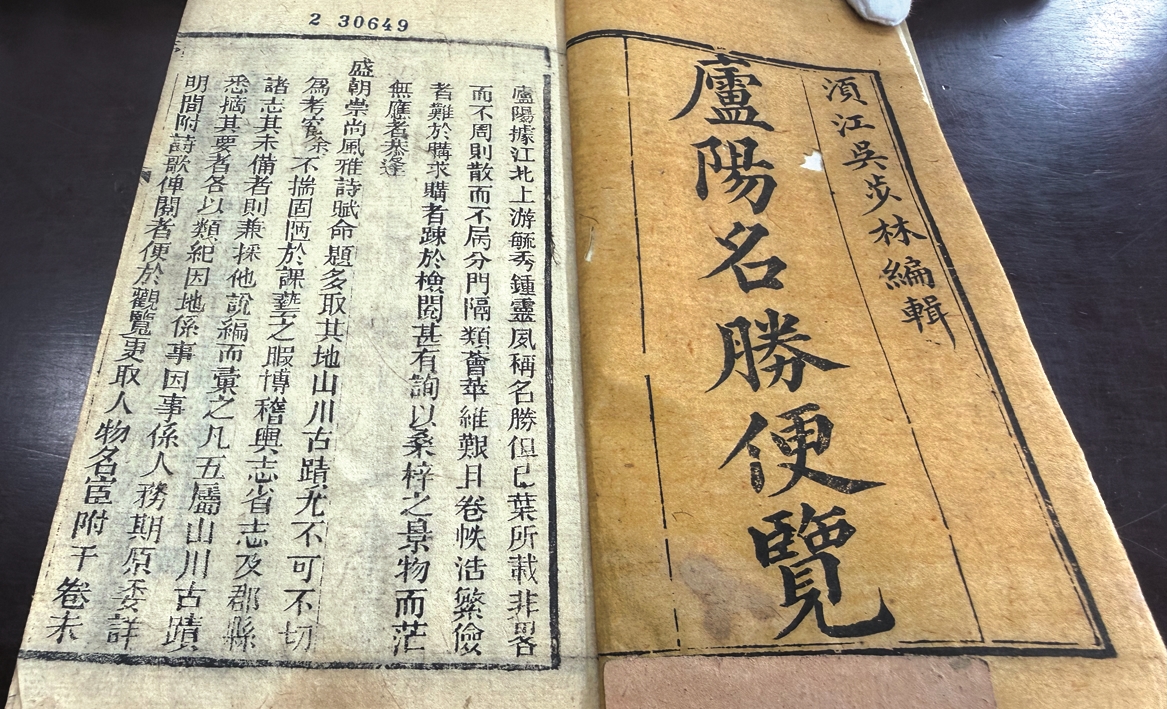 湏江吳步林編輯
廬陽名勝便覽
2 30649
廬陽據江北上游毓秀鍾靈夙稱名勝但邑葉所載非畧
而不周則散而不屬分門隔類薈萃維艱且卷帙浩繁儉
者難於購求購者踈於檢閱甚有詢以桑梓之景物而茫
無應者恭逢
盛朝崇尚風雅詩賦命題多取其地山川古蹟尤不可不切
為考究余不揣固陋於課藝之暇博稽輿志省志及郡縣
諸志其未備者則兼採他說編而彙之凡五屬山川古蹟
悉摘其要者各以類紀因地係事因事係人務期原委詳
明間附詩歌俾閱者便於觀覽更取人物名宦附于卷末